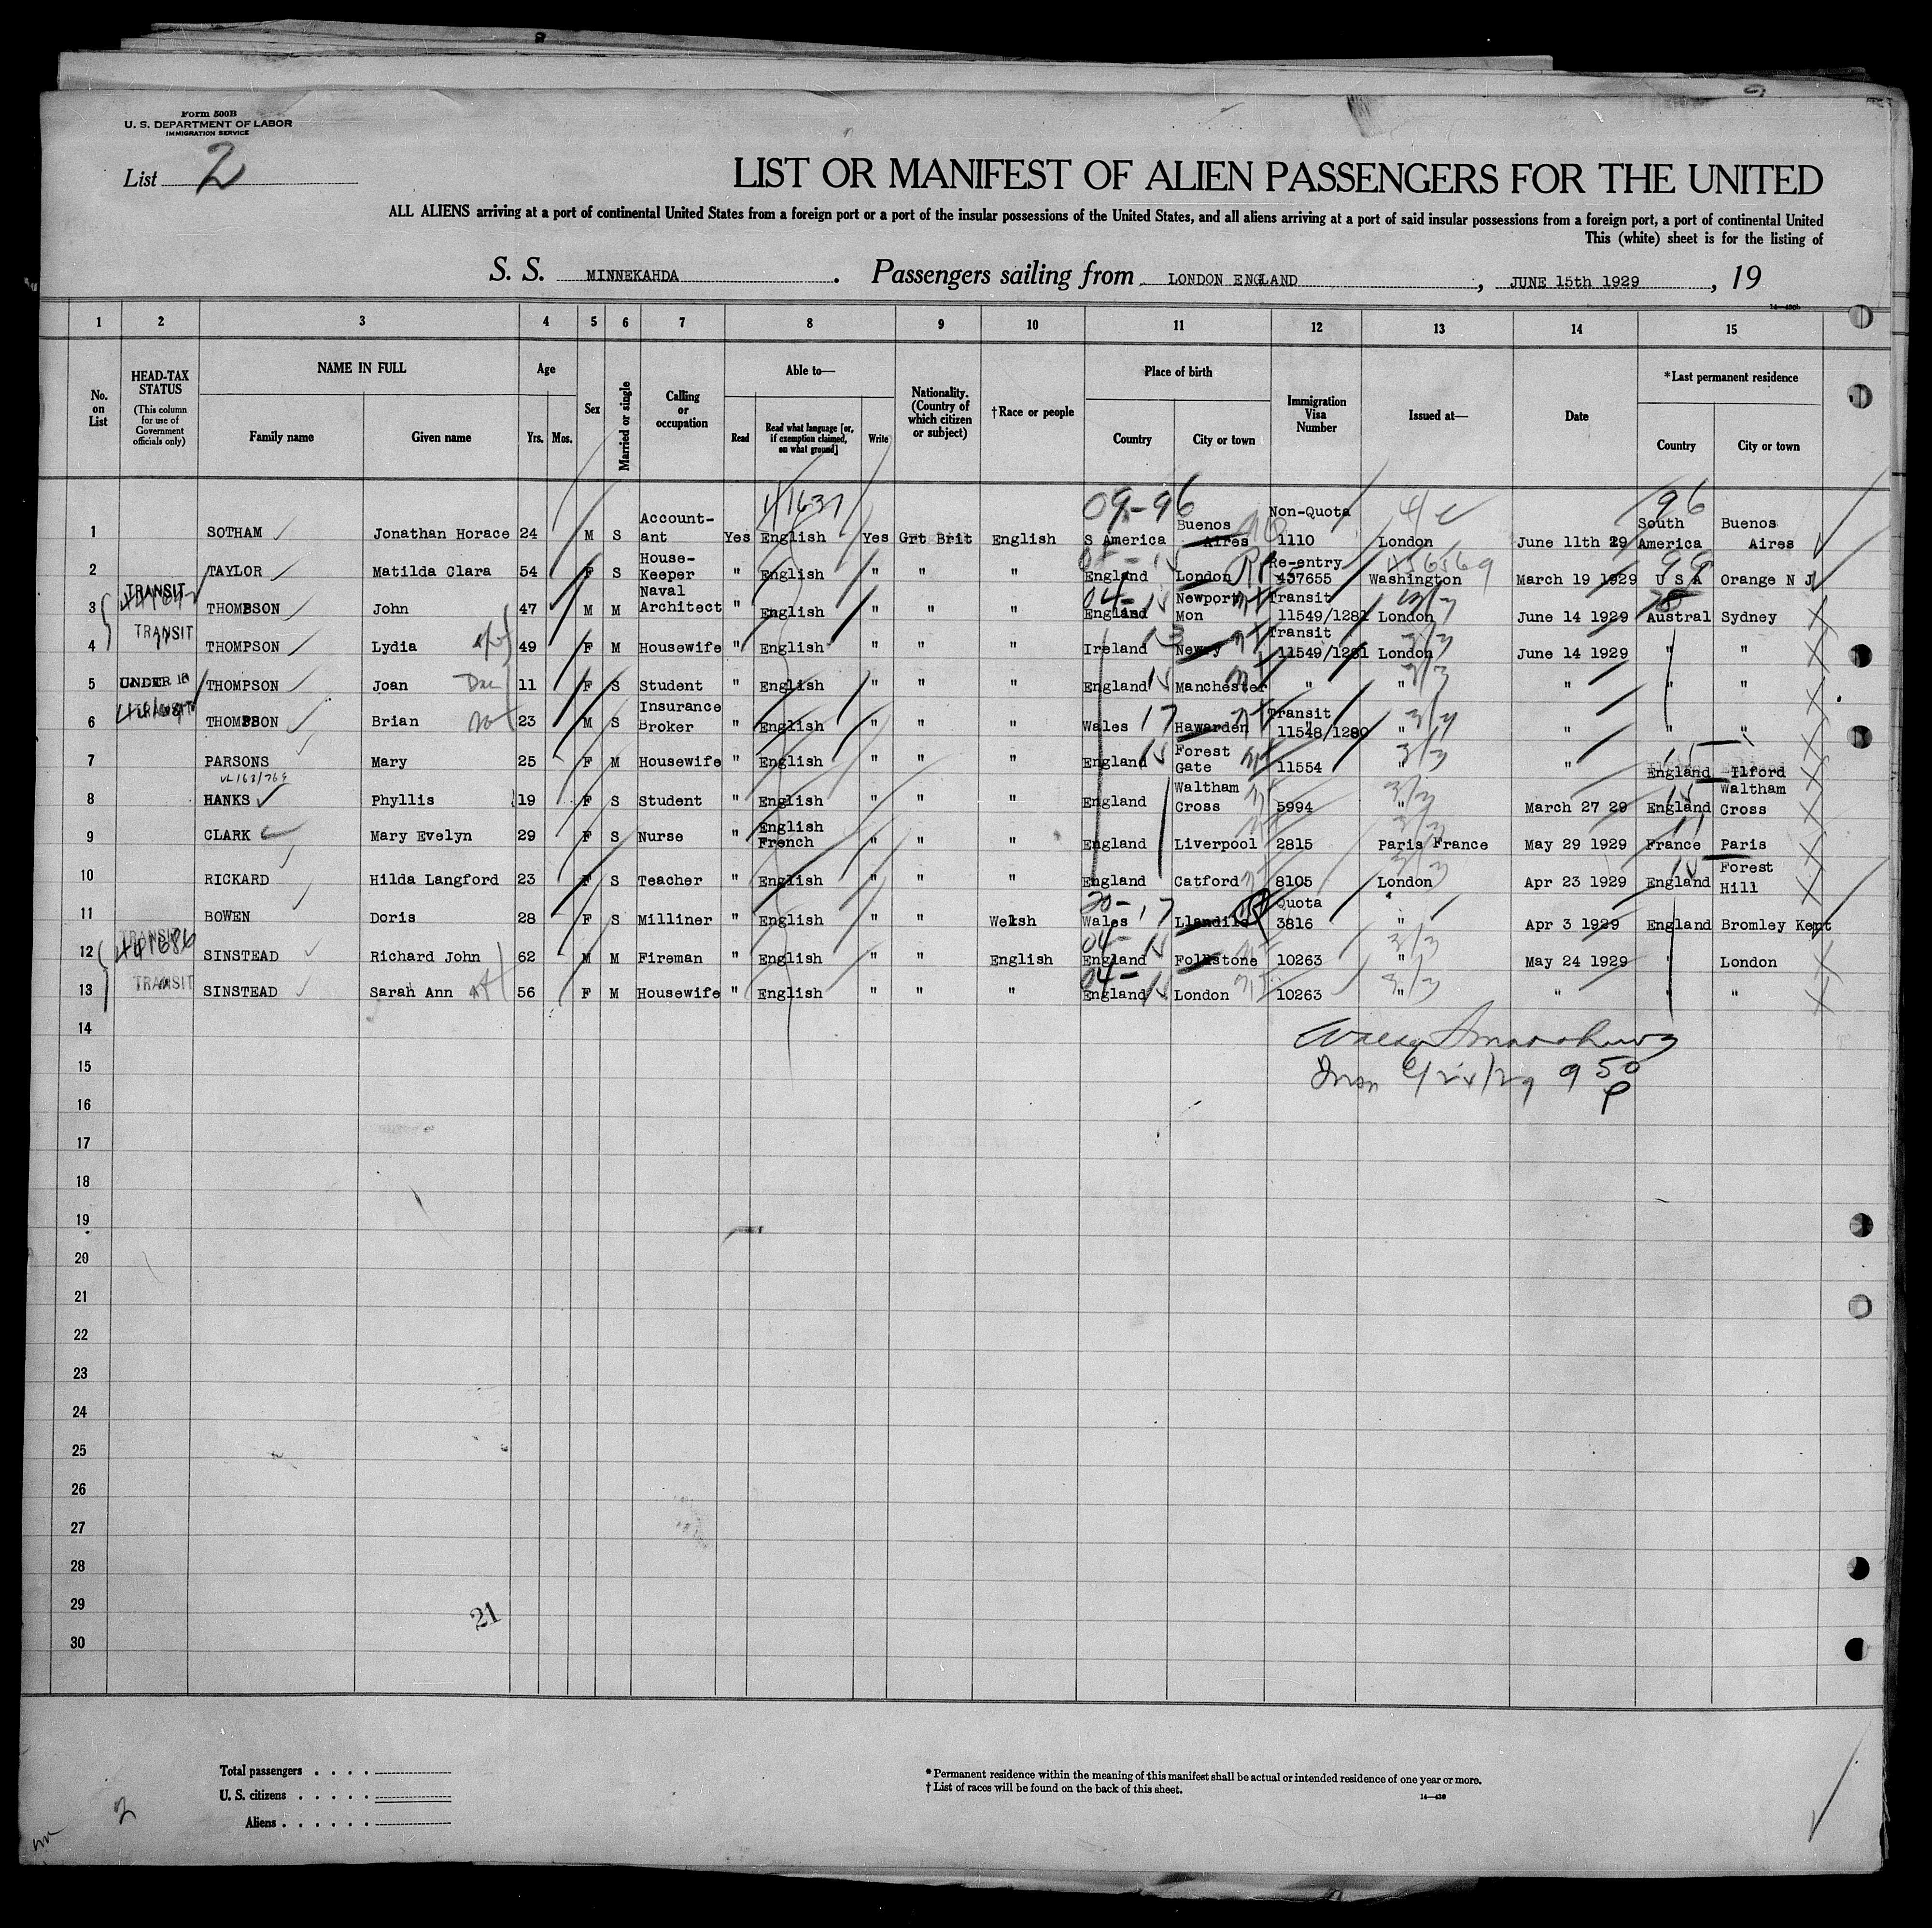 Form 500B
U. S. DEPARTMENT OF LABOR
IMMIGRATION SERVICE
List 2
LIST OR MANIFEST OF ALIEN PASSENGERS FOR THE UNITED
ALL ALIENS arriving at a port of continental United States from a foreign port or a port of the insular possessions of the United States, and all aliens arriving at a port of said insular possessions from a foreign port, a port of continental United
This (white) sheet is for the listing of
S. S. MINNEKAHDA. Passengers sailing from LONDON ENGLAND, JUNE 15th 1929, 19
1 2 3 4 5 6 7 8 9 10 11 12 13 14 15
No. on List
HEAD-TAX STATUS (This column for use of Government officials only)
NAME IN FULL
Family name Given name
Age
Yrs. Mos.
Sex
Married or single
Calling or occupation
Able to—
Read Read what language [or, if exemption claimed, on what ground] Write
Nationality. (Country of which citizen or subject)
†Race or people
Place of birth
Country City or town
Immigration Visa Number
Issued at—
Date
*Last permanent residence
Country City or town
09-96 96
1 SOTHAM Jonathan Horace 24 M S Account-ant Yes English Yes Grt Brit English S America Buenos Aires Non-Quota 1110 London June 11th 29 South America Buenos Aires
2 TAYLOR Matilda Clara 54 F S House-Keeper " English " " " England London Re-entry 437655 Washington March 19 1929 U S A Orange N J
3 TRANSIT THOMPSON John 47 M M Naval Architect " English " " " England Newport Mon Transit 11549/1281 London June 14 1929 Austral Sydney
4 TRANSIT THOMPSON Lydia 49 F M Housewife " English " " " Ireland Newry Transit 11549/1281 London June 14 1929 " "
5 UNDER 16 THOMPSON Joan 11 F S Student " English " " " England Manchester " " " " "
6 TRANSIT THOMPSON Brian 23 M S Insurance Broker " English " " " Wales 17 Hawarden Transit 11548/1280 " " " "
7 PARSONS Mary 25 F M Housewife " English " " " England Forest Gate 11554 " " England Ilford
8 HANKS Phyllis 19 F S Student " English " " " England Waltham Cross 5994 " March 27 29 England Waltham Cross
9 CLARK Mary Evelyn 29 F S Nurse " English French " " " England Liverpool 2815 Paris France May 29 1929 France Paris
10 RICKARD Hilda Langford 23 F S Teacher " English " " " England Catford 8105 London Apr 23 1929 England Forest Hill
11 BOWEN Doris 28 F S Milliner " English " " Welsh Wales 17 Llandilo Quota 3816 " Apr 3 1929 England Bromley Kent
12 TRANSIT SINSTEAD Richard John 62 M M Fireman " English " " English England Folkstone 10263 " May 24 1929 " London
13 TRANSIT SINSTEAD Sarah Ann 56 F M Housewife " English " " " England London 10263 " " " "
14
15
16
17
18
19
20
21
22
23
24
25
26
27
28
29
21
30
Total passengers . . . .
U. S. citizens . . . . .
Aliens . . . . . .
* Permanent residence within the meaning of this manifest shall be actual or intended residence of one year or more.
† List of races will be found on the back of this sheet.
14—430
2